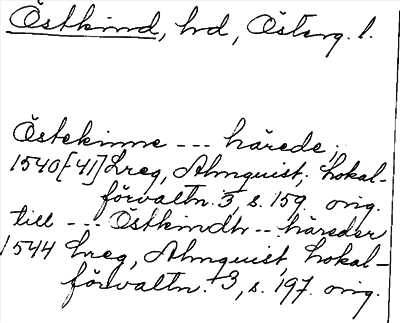 Östkind, hd, Österg. l.
Östekinne --- härede,
1540[41] Lreg, Almquist, Lokal-
förvaltn. 3, s. 159. orig.
till --- Östkindh -- häreder
1544 Lreg, Almquist, Lokal-
förvaltn. 3, s. 197. orig.